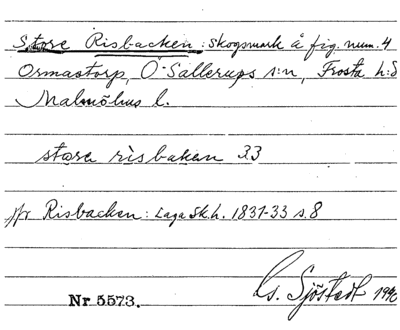 Store Risbacken: skogsmark å fig. num. 4
Ormastorp, Ö Sallerups s:n, Frosta h:d
Malmöhus l.
stora risbaken 33
jfr Risbacken: Laga Sk.h. 1831-33 s.8
Nr 5573.
Gs. Sjöstedt